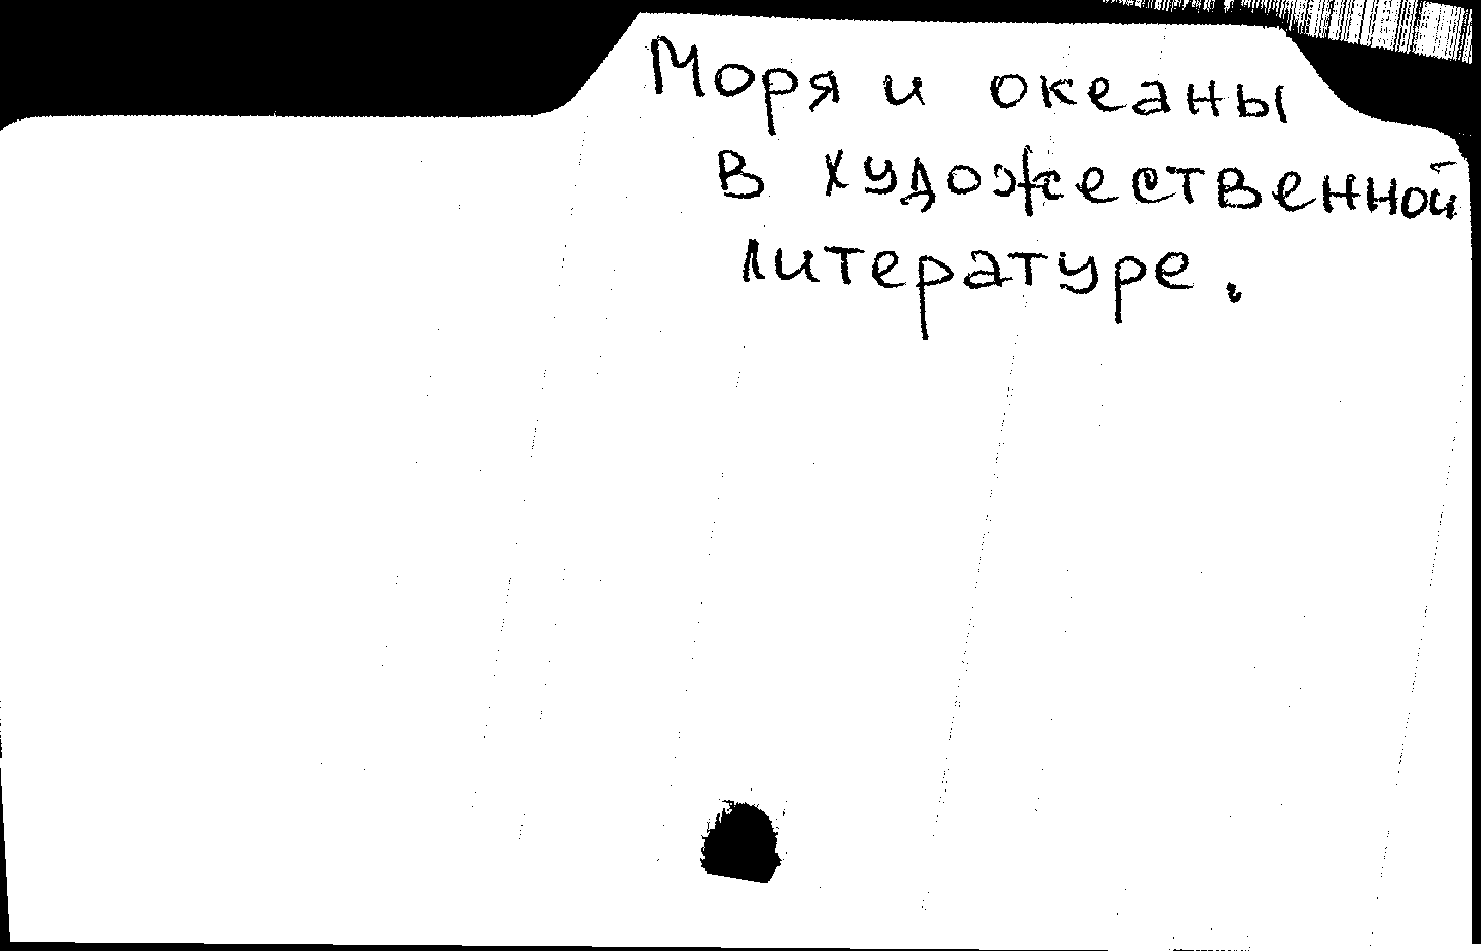 Моря и океаны
в художественной
литературе.